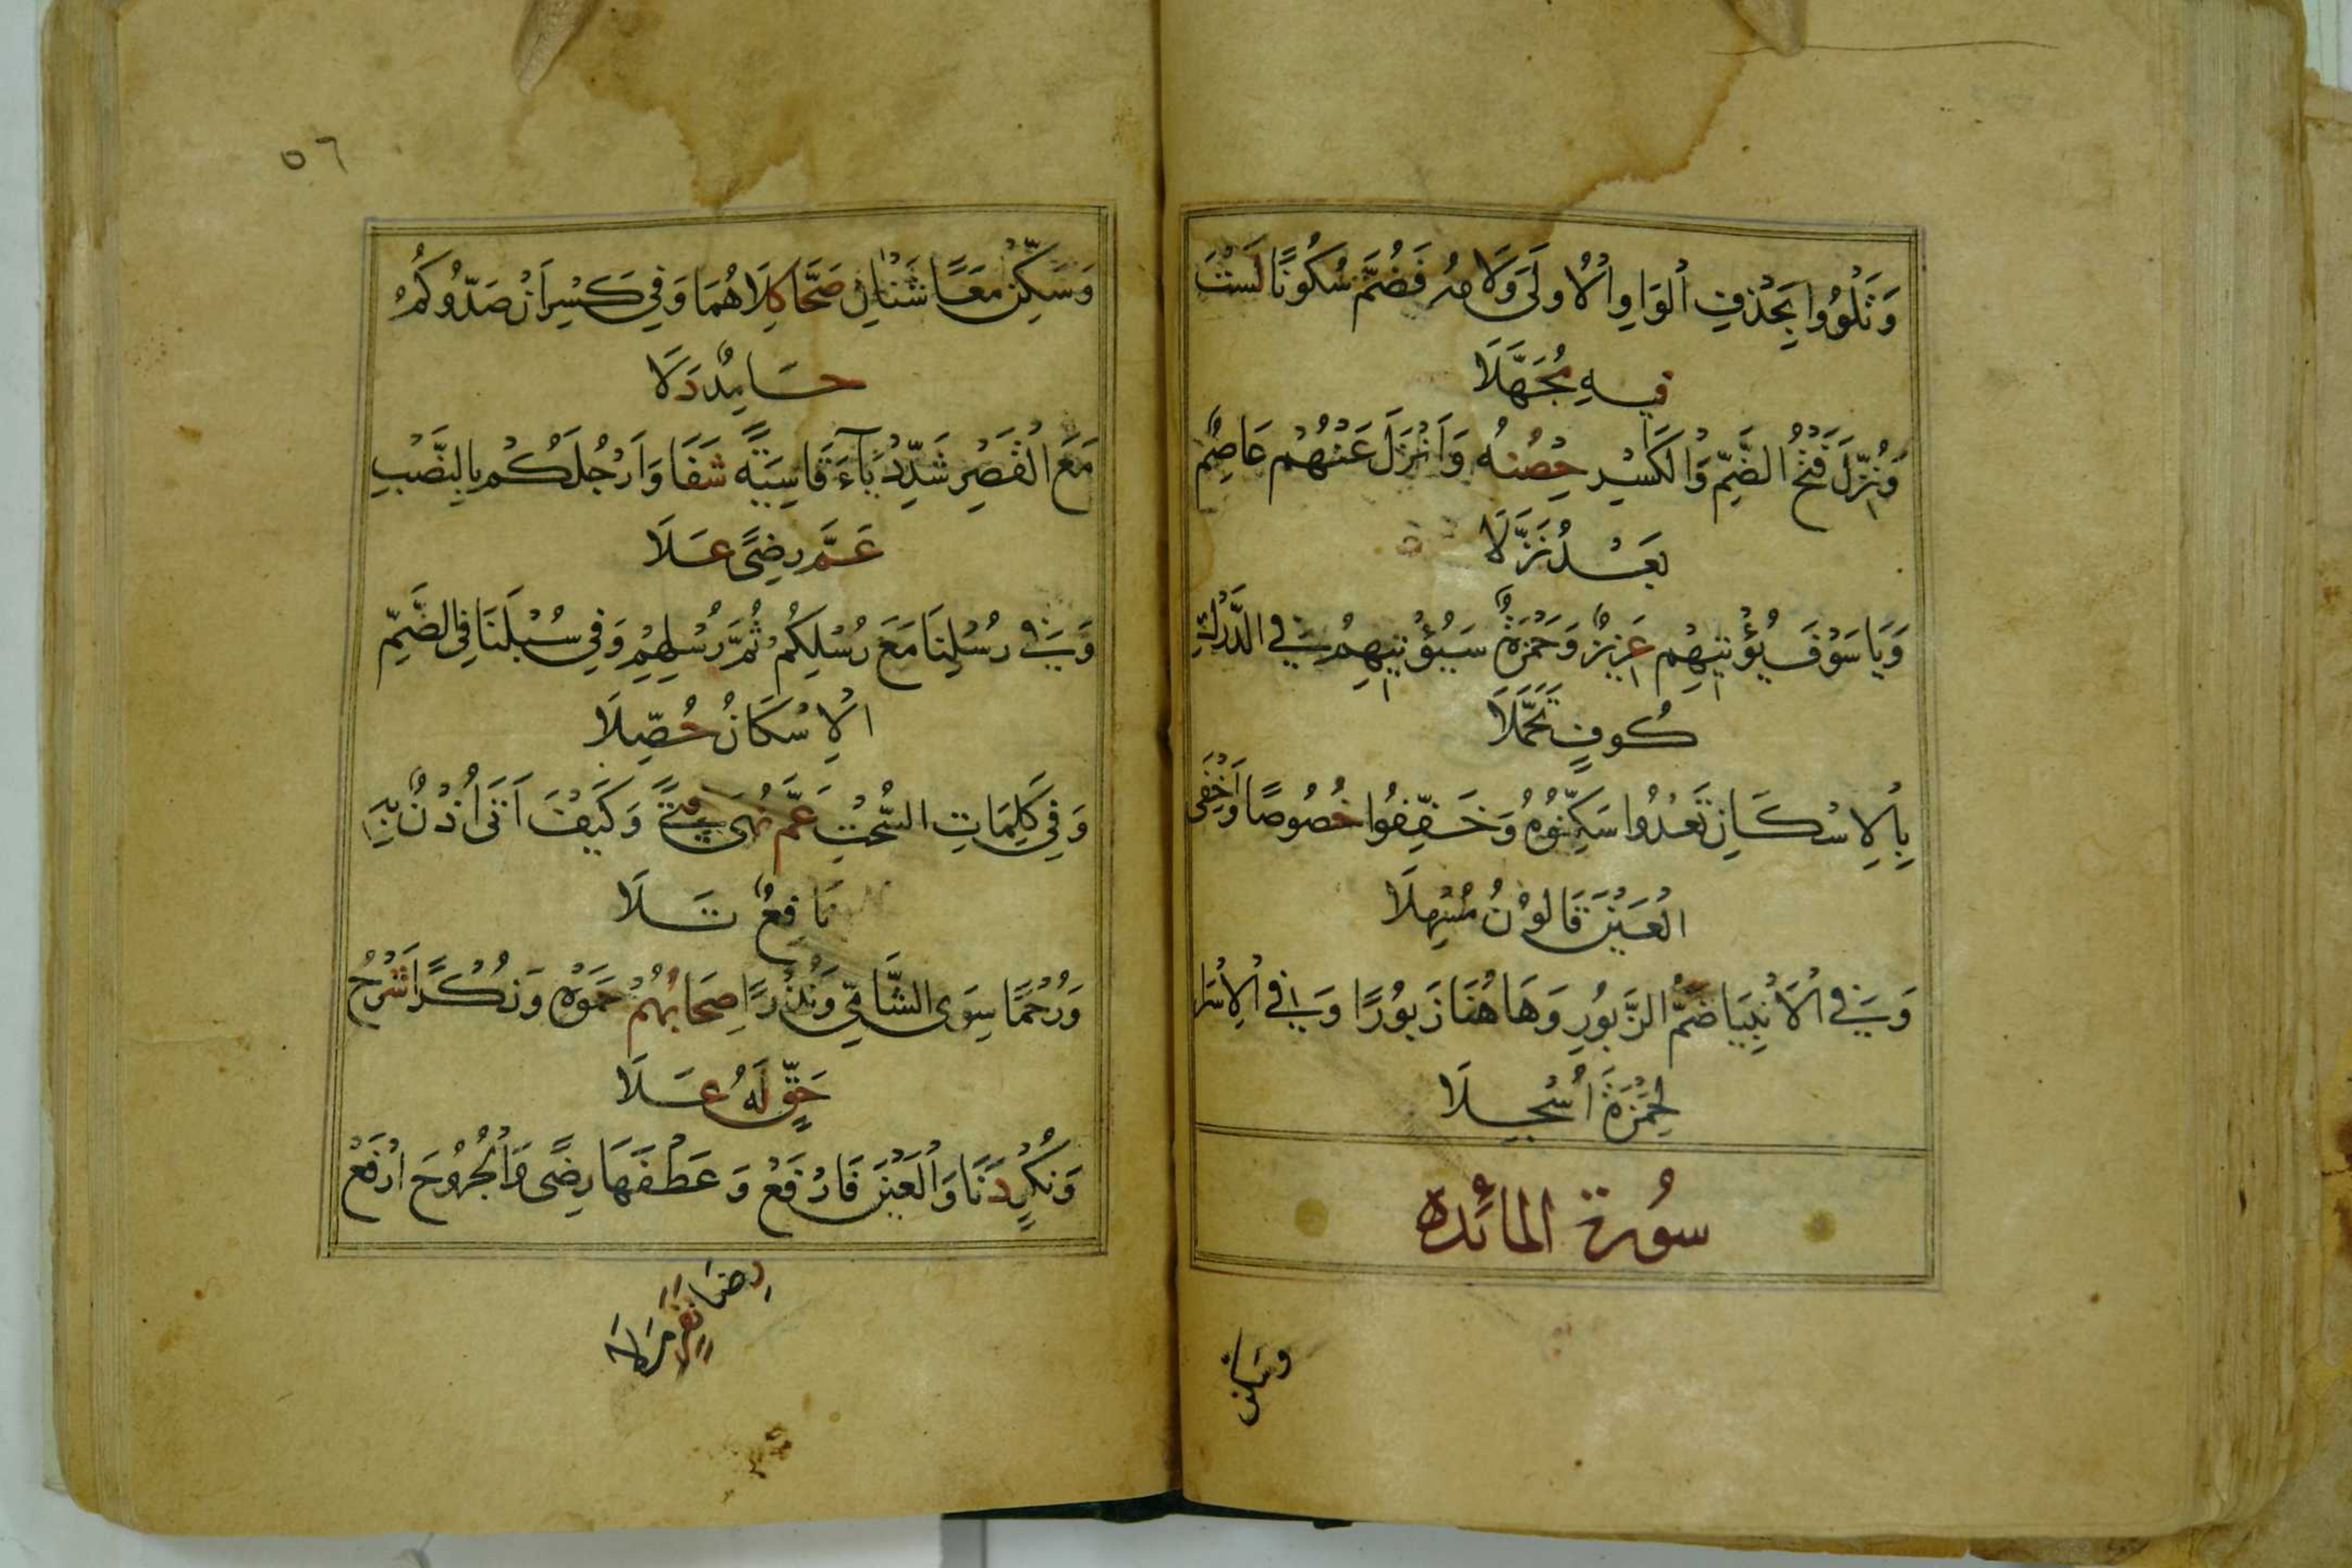 وَتَلْوُوا بِحَذْفِ الْوَاوِ الْاُولَى وَلَامَهُ فَضُمَّ سُكُونًا لَسْتَ
فِيهِ مُجَهَّلَا
وَنُزِّلَ فَتْحُ الضَّمِّ وَالْكَسْرِ حِصْنُهُ وَاَنْزَلَ عَنْهُمْ عَاصِمٌ
بَعْدُ نَزَّلَا
وَيَا سَوْفَ يُؤْتِيهِمْ عَزِيزٌ وَحَمْزَةٌ سَيُؤْتِيهِمُ فِي الدَّرْكِ
كُوفٍ تَحَمَّلَا
بِالْاِسْكَانِ تَعْدُوا سَكِّنُوهُ وَخَفِّفُوا خُصُوصًا وَاَخْفَى
الْعَيْنَ قَالُونُ مُسْهِلَا
وَفِي الْاَنْبِيَا ضَمُّ الزَّبُورِ وَهَاهُنَا زَبُورًا وَفِي الْاِسْرَا
لِحَمْزَةَ اُسْجِلَا
سُورة المائدة
وسكن
٥٦
وَسَكِّنْ مَعًا شَنْاٰنُ صَحَّا كِلَاهُمَا وَفِي كَسْرِ اَنْ صَدُّوكُمُ
حَامِدٌ دَلَا
مَعَ الْقَصْرِ شَدِّدْ يَآءَ قَاسِيَةً شَفَا وَاَرْجُلَكُمْ بِالنَّصْبِ
عَمَّ رِضًى عَلَا
وَفِي رُسْلِنَا مَعَ رُسْلِكُمْ ثُمَّ رُسْلِهِمْ وَفِي سُبْلَنَا فِي الضَّمِّ
الْاِسْكَانُ حُصِّلَا
وَفِي كَلِمَاتِ السُّحْتِ عَمَّ نُهَى فِتًى وَكَيْفَ اَتَى اُذْنٌ بِهِ
نَافِعٌ تَلَا
وَرُحْمًا سِوَى الشَّامِي وَنُذْرًا صِحَابُهُمْ حَمَوْهُ وَنُكْرًا شَرْعُ
حَقٍّ لَهُ عَلَا
وَنُكْرٍ دَنَا وَالْعَيْنَ فَارْفَعْ وَعَطْفَهَا رِضًى وَالْجُرُوحَ ارْفَعْ
رضا
نفر ملا